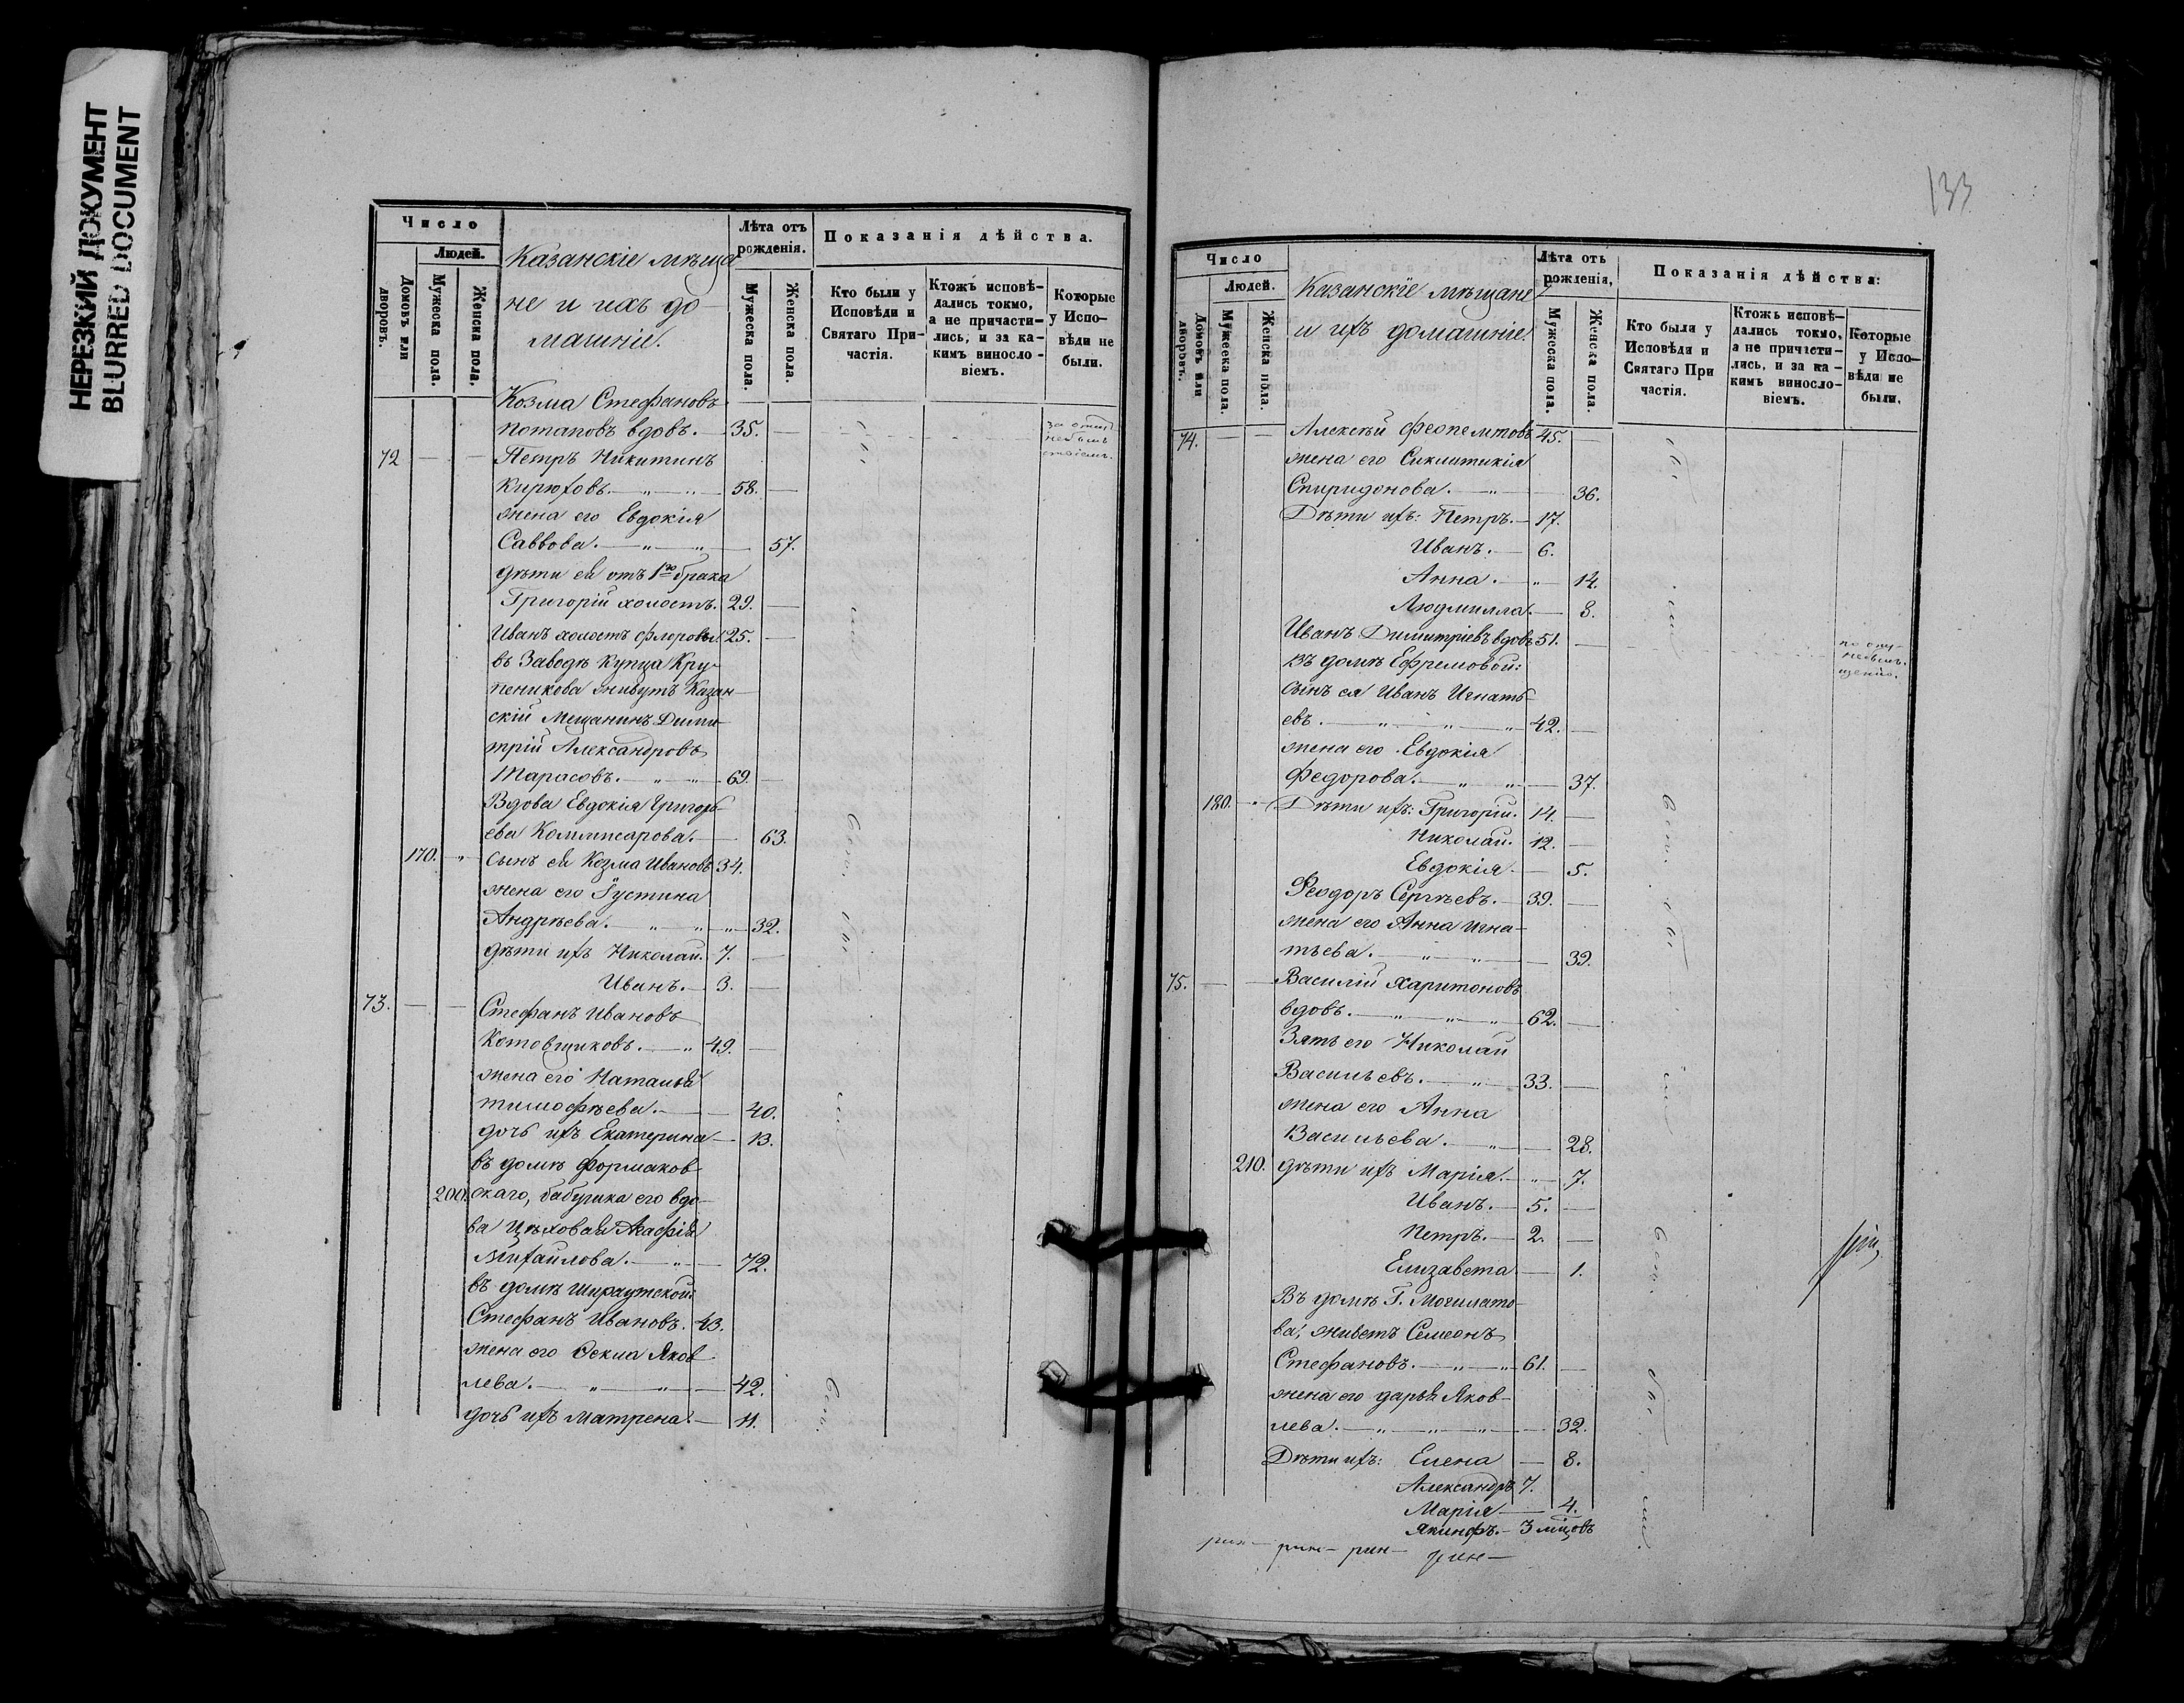 НЕРЕЗКИЙ ДОКУМЕНТ
BLURRED DOCUMENT
Число
Людей.
Домовъ или дворовъ.
Мужеска пола.
Женска пола.
Казанскіе мѣща
не и ихъ до
машніе.
Лѣта отъ
рожденія.
Мужеска пола.
Женска пола.
Показанія дѣйства.
Кто были у
Исповѣди и
Святаго При-
частія.
Ктожъ исповѣ-
дались токмо,
а не причасти-
лись, и за ка-
кимъ винosло-
віемъ.
Которые
у Испо-
вѣди не
были.
Козма Стефановъ
Потаповъ вдовъ. 35.
72 Петръ Никитинъ
Кирюховъ. 58.
жена его Евдокія
Саввова. 57.
дѣти ея отъ 1го брака
Григорій холостъ. 29.
Иванъ холостъ Флоровы 25.
въ Заводѣ Купца Кру-
пеникова живутъ Казан
скій Мещанинъ Дими-
трій Александровъ
Тарасовъ. 69.
Вдова Евдокія Григорь
ева Коммисарова. 63.
170. Сынъ ея Козма Ивановъ 34.
жена его Іустина
Андрѣева. 32.
дѣти ихъ Николай. 7.
Иванъ. 3.
73. Стефанъ Ивановъ
Котовщиковъ. 49.
жена его Наталья
Тимофѣева. 40.
дочь ихъ Екатерина 13.
въ домѣ Формаков
200. скаго, бабушка его вдо-
ва цѣховая Агафія
Михайлова. 72.
въ домѣ
Стефанъ Ивановъ. 43.
жена его Яков
лева. 42.
дочь ихъ Матрена. 11.
133
Число
Людей.
Домовъ или дворовъ.
Мужеска пола.
Женска пола.
Казанскіе мѣщане
и ихъ домашніе.
Лѣта отъ
рожденія,
Мужеска пола.
Женска пола.
Показанія дѣйства:
Кто были у
Исповѣди и
Святаго При
частія.
Ктожь исповѣ-
дались токмо,
а не причасти-
лись, и за ка-
кимъ винosло-
віемъ.
Которые
у Испо-
вѣди не
были.
74. Алексѣй Феопемтовъ 45.
жена его Синклитикія
Спиридонова. 36.
Дѣти ихъ: Петръ. 17.
Иванъ. 6.
Анна. 14.
Людмилла. 8.
Иванъ Димитріевъ вдовъ 51.
Въ домѣ Ефремовой:
сынъ ея Иванъ Игнать
евъ. 42.
жена его Евдокія
Федорова. 37.
180. Дѣти ихъ: Григорій. 14.
Николай. 12.
Евдокія. 5.
Феодоръ Сергѣевъ. 39.
жена его Анна Игна-
тьева. 39.
75. Василій Харитоновъ
вдовъ. 62.
Зять его Николай
Васильевъ. 33.
жена его Анна
Васильева. 28.
210. дѣти ихъ Марія. 7.
Иванъ. 5.
Петръ. 2.
Елизавета 1.
Въ домѣ Г.
ва, живетъ Семеонъ
Стефановъ. 61.
жена его Дарья Яков-
лева. 32.
Дѣти ихъ: Елена 8.
Александръ 7.
Марія 4.
Якинфъ. 3 мѣсц.